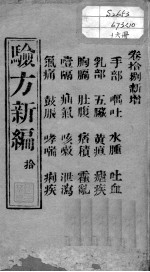 S2653
673410
卷拾捌新增
手部 嘔吐 水腫 吐血
乳部 五臟 黃疸 瘧疾
胸腦 肚腹 痞積 霍亂
噎膈 疝氣 咳嗽 泄瀉
氣痛 鼓脹 哮喘 痢疾
驗方新編
拾